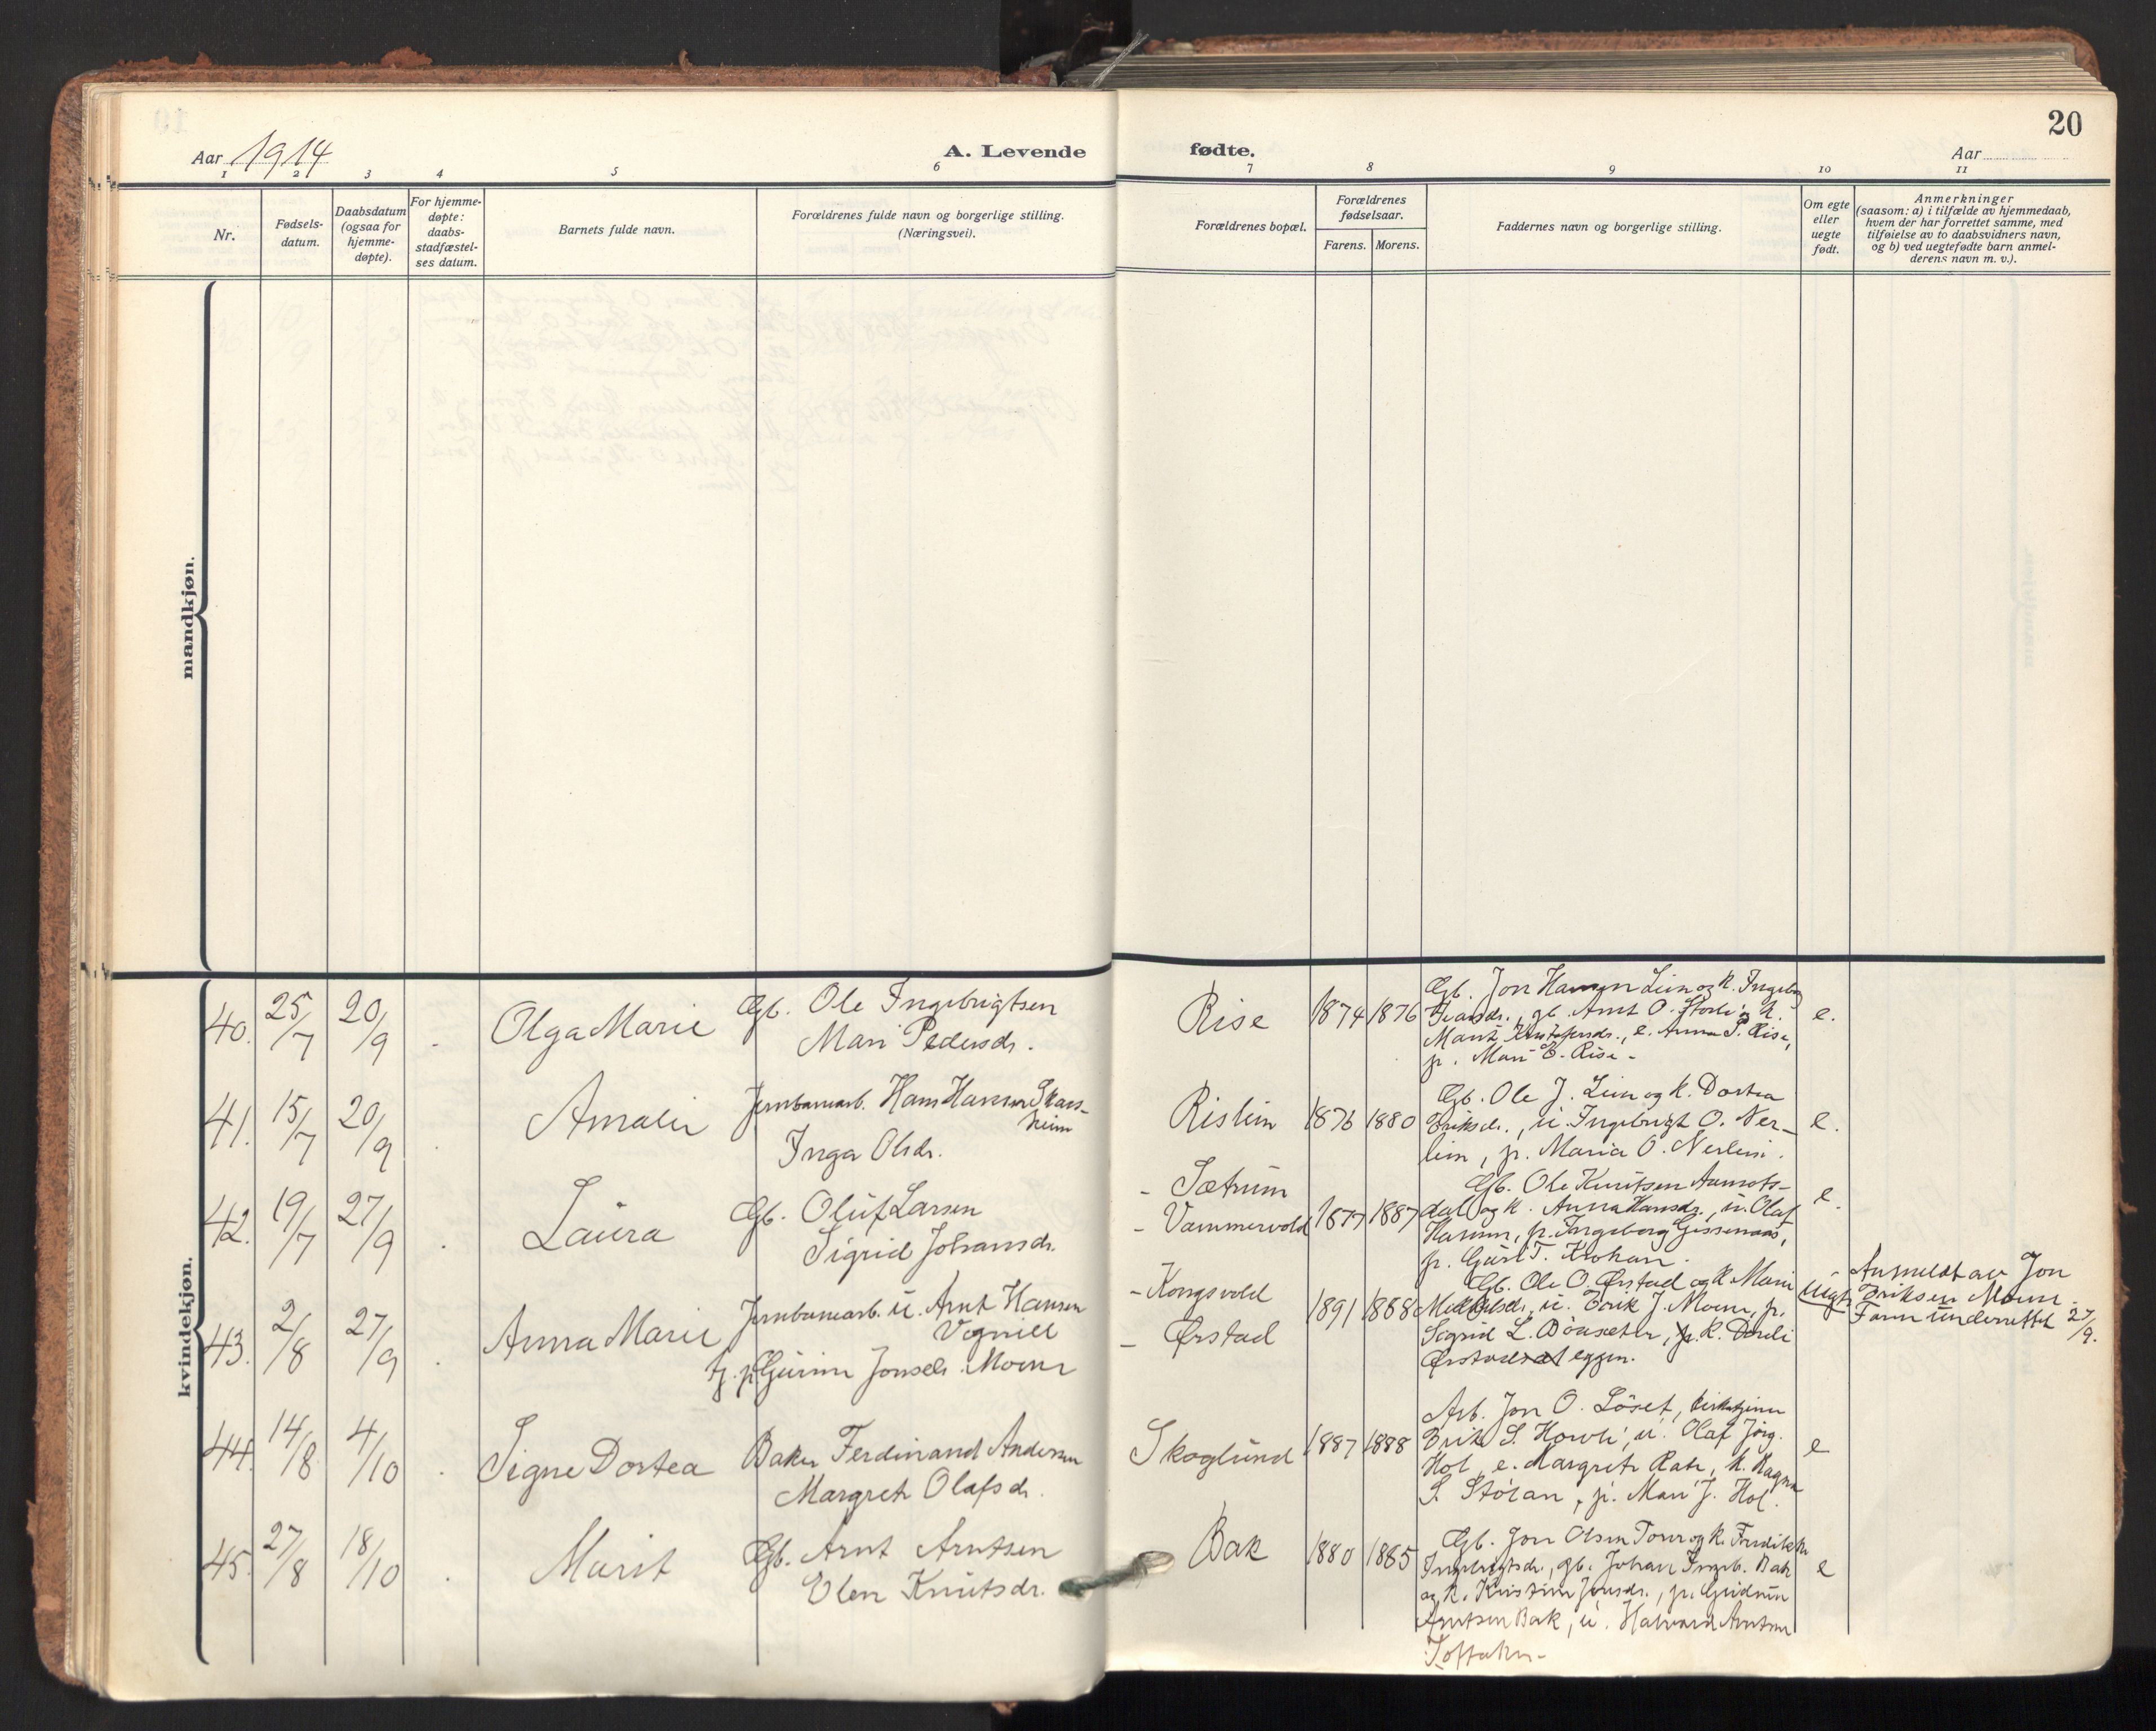 20
Aar 1914
A. Levende
fødte.
Aar
1 2 3 4 5 6 7 8 9 10 11
Nr.
Fødsels-
datum.
Daabsdatum
(ogsaa for
hjemme-
døpte).
For hjemme-
døpte:
daabs-
stadfæstel-
ses datum.
Barnets fulde navn.
Forældrenes fulde navn og borgerlige stilling.
(Næringsvei).
Forældrenes bopæl.
Forældrenes
fødselsaar.
Farens. Morens.
Faddernes navn og borgerlige stilling.
Om egte
eller
uegte
født.
Anmerkninger
(saasom: a) i tilfælde av hjemmedaab,
hvem der har forrettet samme, med
tilføielse av to daabsvidners navn,
og b) ved uegtefødte barn anmel-
derens navn m. v.).
mandkjøn.
kvindekjøn.
40. 25/7 20/9 . Olga Marie
Gb. Ole Ingebrigtsen
Mari Pedersdr.
Rise 1874 1876
Gb. Jon Hansen Lien og k. Ingeborg
Ivarsdr., gb. Arnt O. Storli og k.
Marit Kristofersdr., e. Anna P. Rise,
p. Mari E. Rise -
e.
41. 15/7 20/9 . Amalie
Jernbanearb. Hans Hansen Skars-
heim
Inga Olsdr.
Rislien 1876 1880
Gb. Ole J. Lien og k. Dortea
Eriksdr., u. Ingebrigt O. Ner-
lien, p. Maria O. Nerlien.
e.
42. 19/7 27/9 . Laura
Gb. Oluf Larsen
Sigrid Johansdr.
- Sætrum
- Vammervold 1877 1887
Gb. Ole Knutsen Aamots-
dal og k. Anna Hansdr., u. Olaf
Hansen, p. Ingeborg Gissenaas,
p. Guri T. Krokan.
e.
43. 2/8 27/9 Anna Marie
Jernbanearb. u. Arnt Hansen
Vognill
tj. p. Gurine Jonsdr. Moene
- Kongsvold
- Ørstad
1891 1888
Gb. Ole O. Ørstad og k. Mari
Mikkelsdr., u. Erik J. Moene, p.
Sigrid L. Böasæter, p. k. Dordi
Ørstad eggen.
Uegte
Anmeldt av Jon
Eriksen Moene.
Faren underrettet 27/9.
44. 14/8 4/10 . Signe Dortea
Baker Ferdinand Andersen
Margret Olafsdr.
Skoglund 1887 1888
Arb. Jon O. Löset, kirketjener
Erik S. Horvli, u. Olaf Jörg.
Hol, e. Margrete Rate, k. Ragna
S. Stölan, p. Mari J. Hol.
e
45. 27/8 18/10 . Marit
Gb. Arnt Arntsen
Elen Knutsdr.
Bak 1880 1885
Gb. Jon Olsen Torve og k. Fredrikke
Ingebrigtsdr., gb. Johan Ingeb. Bak
og k. Kristine Jonsdr., p. Gudrun
Arntsen Bak, u. Halvard Arntsen
Toftaker -
e